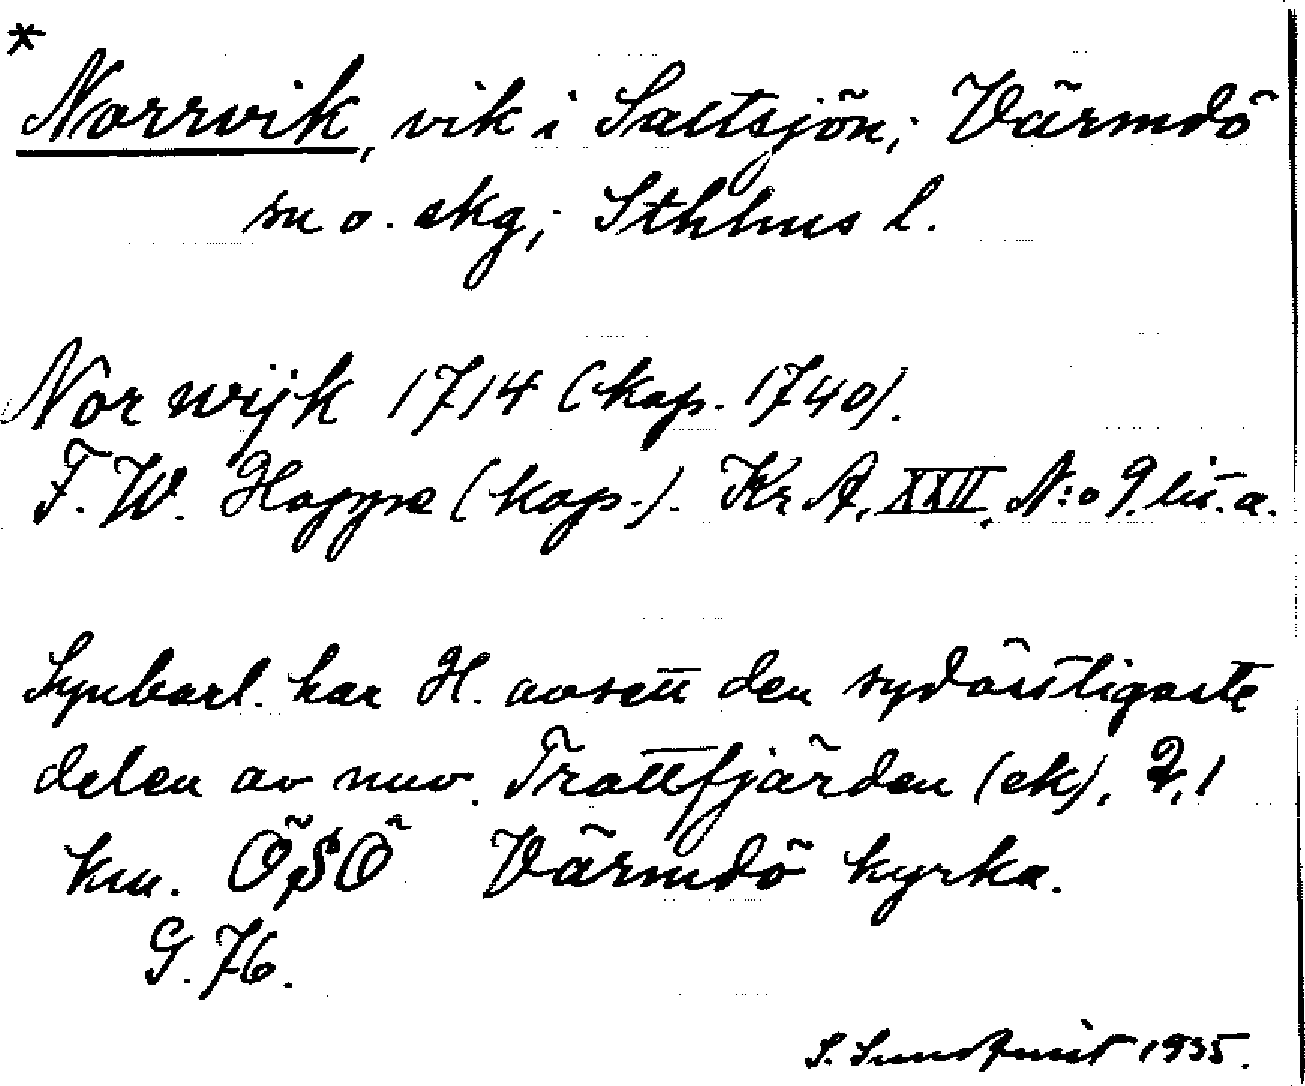 *
Norrvik, vik i Saltsjön; Värmdö
sn o. skg; Sthlms l.
Nor wijk 1714 (kop. 1740).
F. W. Hoppe (kop.). Kr A, XXII, N:o 9. lit. a.
Synbarl. har H. avsett den sydöstligaste
delen av nuv. Trattfjärden (ek), 2,1
km. ÖSÖ Värmdö kyrka.
G. 76.
S. Sundqvist 1935.